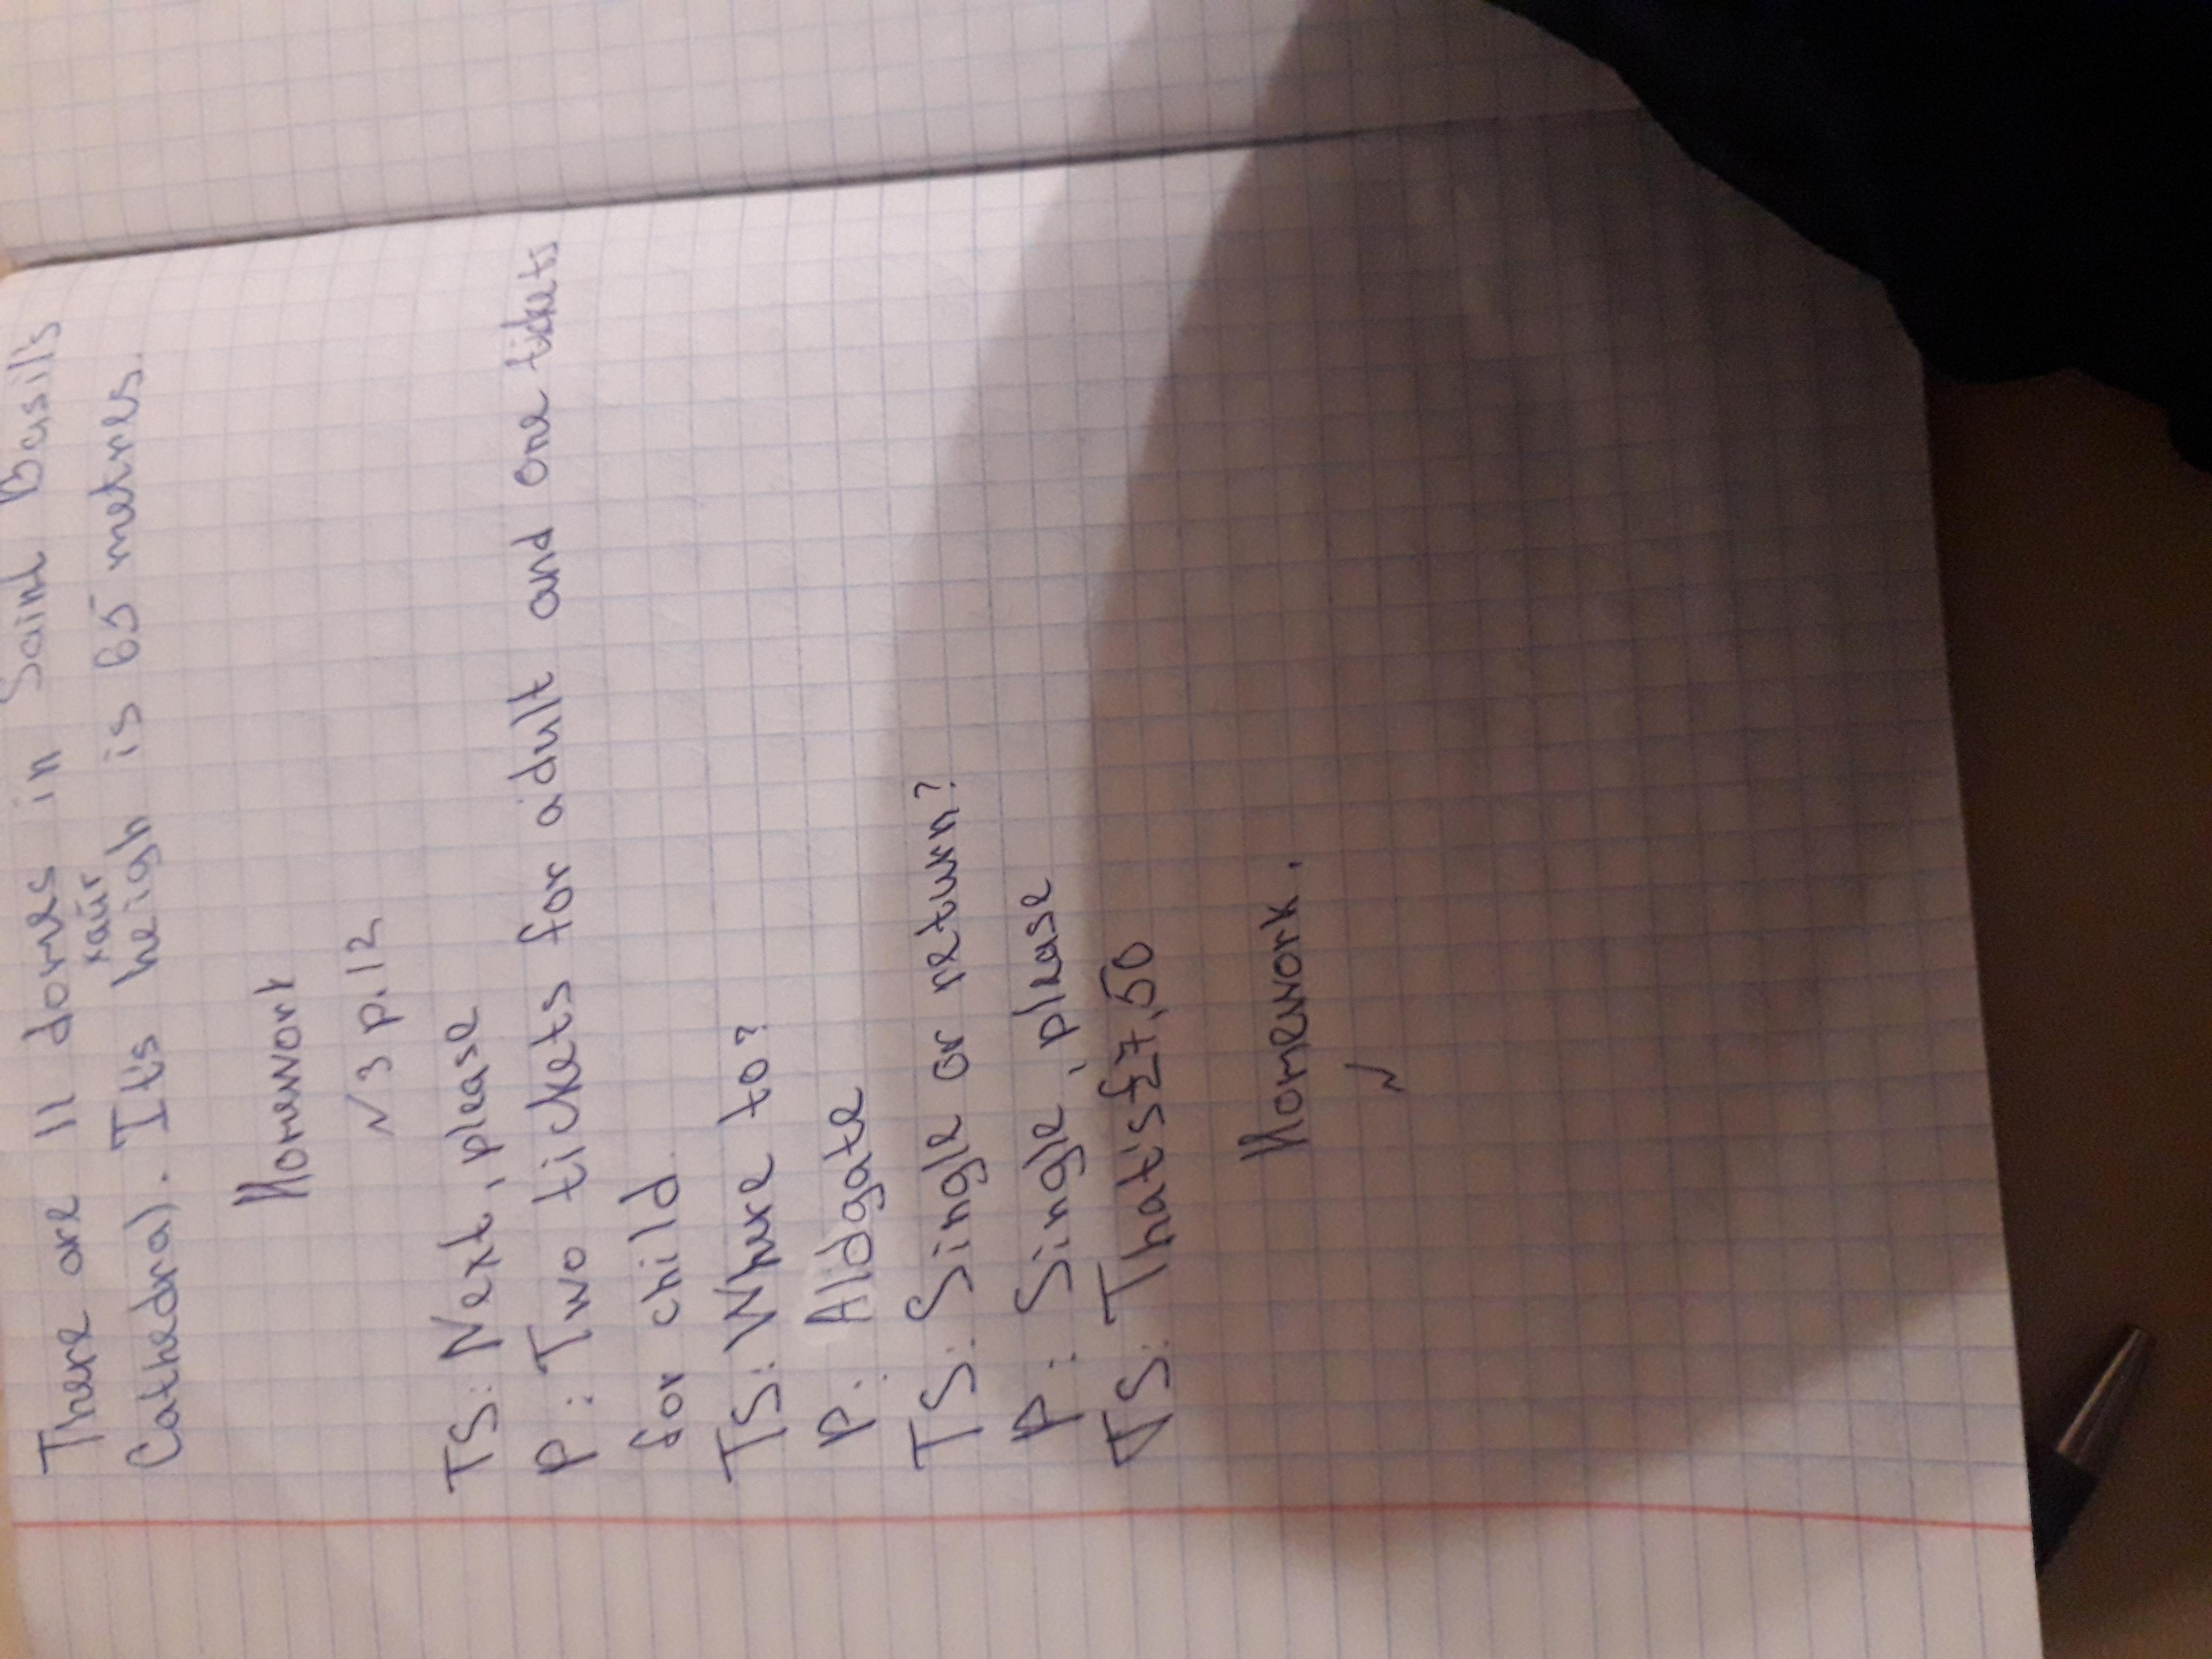 There are 11 domes in Saint Basil's
хайт
Cathedral. It's heigh is 65 metres.
Homework
№ 3 p.12
TS: Next, please
P: Two tickets for adult and one tickets
for child
TS: Where to?
P: Aldgate
TS: Single or return?
P: Single, please
TS: That's £7,50
Homework.
№